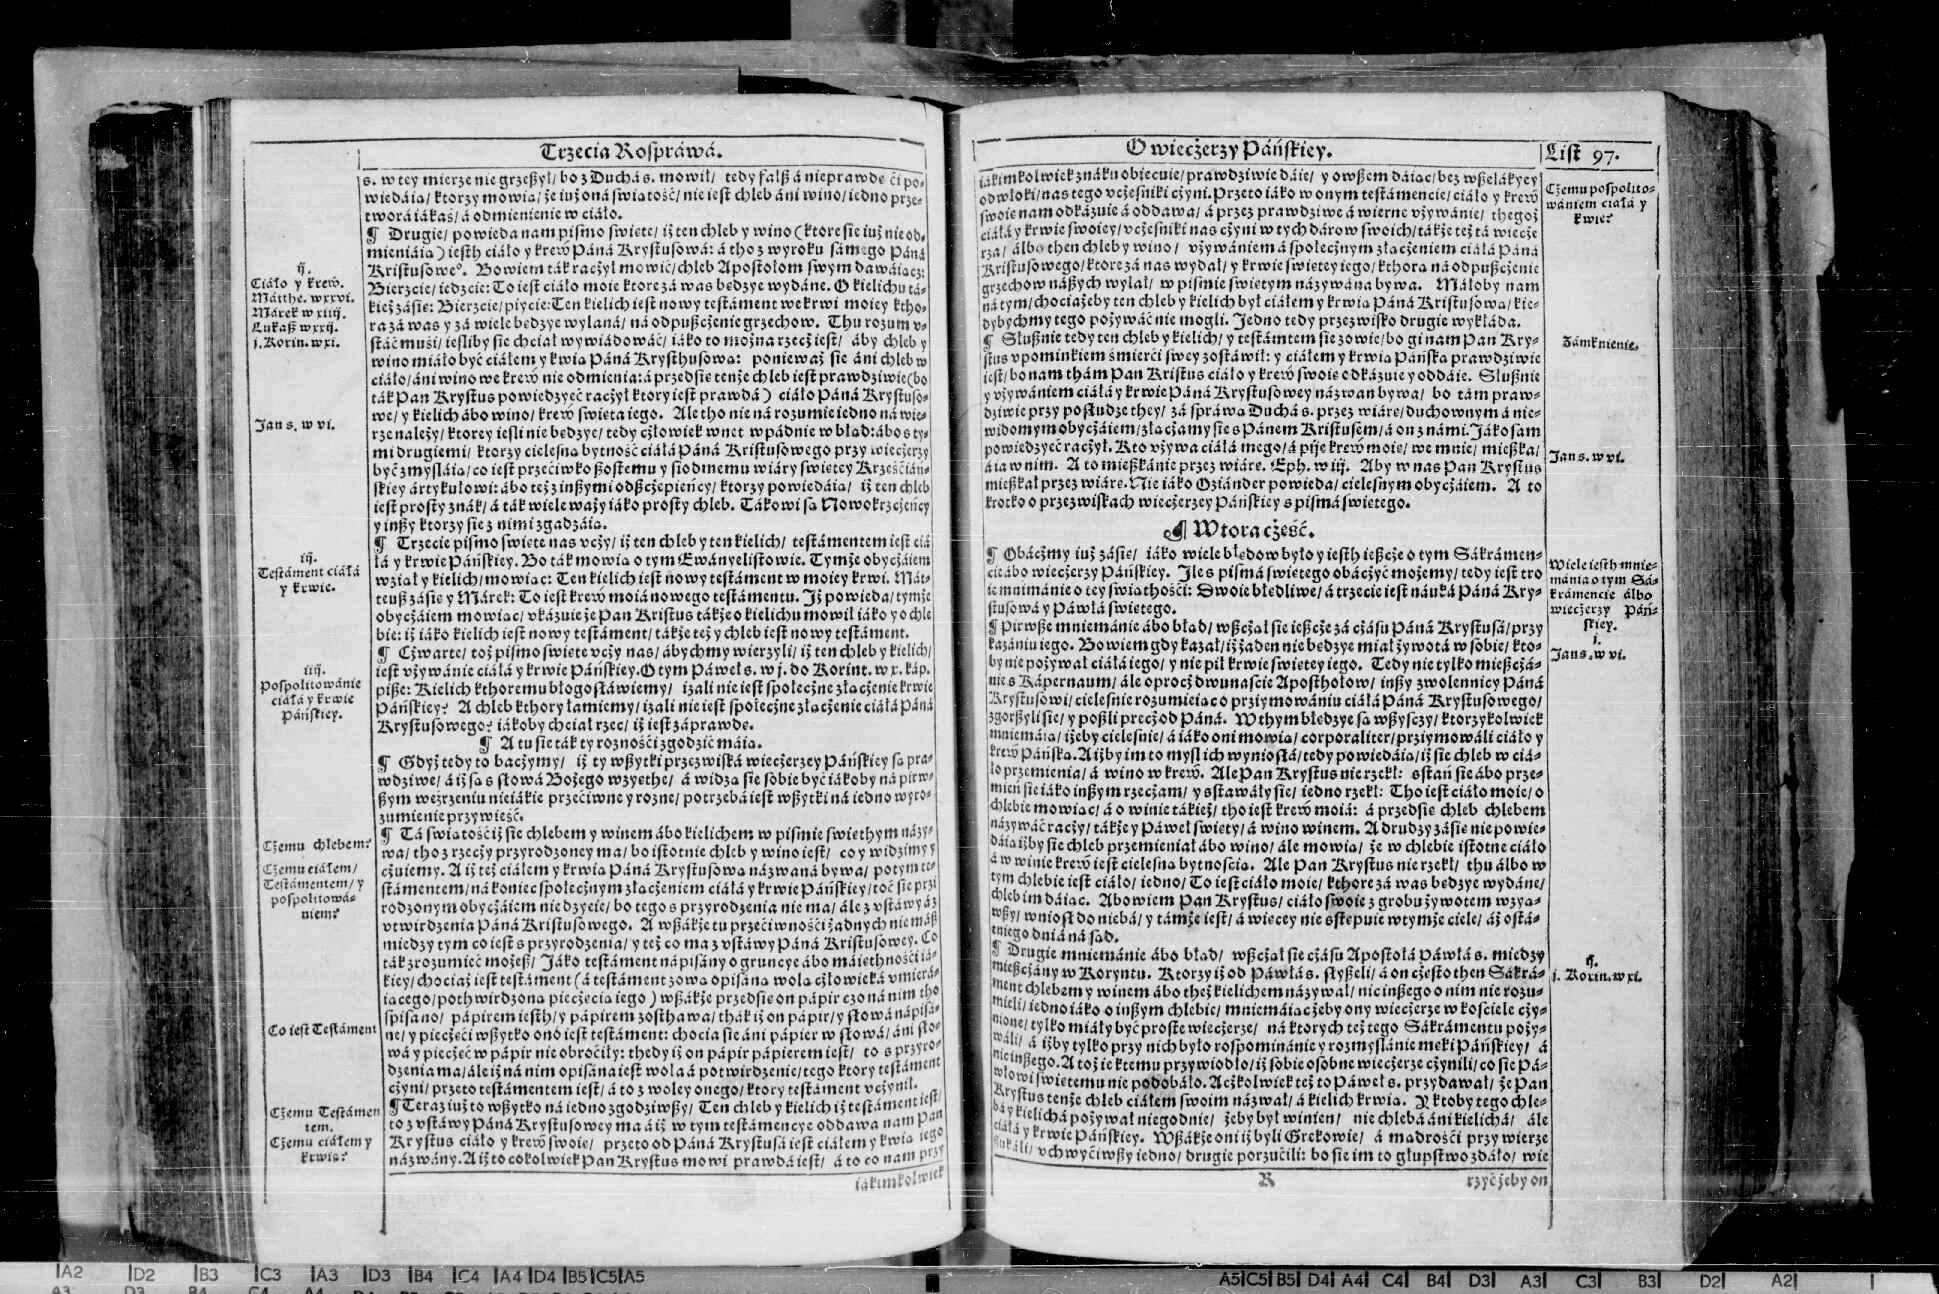 Trzecia Rosprawá.
s. w tey mierze nie grzeßył/ bo z Duchá s. mowił/ tedy falß á nieprawde ci po-
wiedáia/ ktorzy mowia/ że iuż oná swiatość/ nie iest chleb áni wino/ iedno prze-
tworá iákaś/ á odmienienie w ciáło.
¶ Drugie/ powieda nam pismo swiete/ iż ten chleb y wino (ktore sie iuż nie od-
mieniáia) iesth ciáło y krew Páná Krystusowá: á tho z wyroku sámego Páná
Kristusowe°. Bowiem ták raczył mowić/ chleb Apostołom swym dawáiacz:
Bierzcie/ iedzcie: To iest ciáło moie ktore zá was bedzye wydáne. O kielichu tá-
kież zásie: Bierzcie/ piycie: Ten kielich iest nowy testáment we krwi moiey ktho-
ra zá was y zá wiele bedzye wylaná/ ná odpußczenie grzechow. Thu rozum v-
stáć muśi/ iesliby sie chciał wywiádowáć/ iáko to możná rzecż iest/ áby chleb y
wino miáło być ciáłem y kwia Páná Krysthusowa: poniewaź sie áni chleb w
ciáło/ áni wino we krew nie odmienia: á przedsie tenże chleb iest prawdziwie (bo
ták Pan Krystus powiedzyeć raczył ktory iest prawdá) ciáło Páná Krystuso-
we/ y kielich ábo wino/ krew swieta iego. Ale tho nie ná rozum ie iedno ná wie-
rze należy/ ktorey iesli nie bedzye/ tedy człowiek wnet wpádnie w bład: ábo s ty-
mi drugiemi/ ktorzy cielesna bytność ciáłá Páná Kristusowego przy wieczerzy
być zmyśláia/ co iest przećiwko ßostemu y śiodmemu wiáry swietey Krześćiáń-
skiey ártykułowi: ábo też z inßymi odßczepieńcy/ ktorzy powiedáia/ iż ten chleb
iest prosty znák/ á ták wiele waży iáko prosty chleb. Tákowi sa Nowokrzczeńcy
y inßy ktorzy sie z nimi zgadzáia.
¶ Trzecie pismo swiete nas vczy/ iż ten chleb y ten kielich/ testámentem iest ciá
łá y krwie Páńskiey. Bo ták mowia o tym Ewányelistowie. Tymże obyczáiem
wział y kielich/ mowiac: Ten kielich iest nowy testáment w moiey krwi. Mát-
teuß zásie y Márek: To iest krew moiá nowego testámentu. Iż powieda/ tymże
obyczáiem mowiac/ vkázuie że Pan Kristus tákże o kielichu mowił iáko y o chle
bie: iż iáko kielich iest nowy testáment/ tákże też y chleb iest nowy testáment.
¶ Czwarte/ toż pismo swiete vczy nas/ ábychmy wierzyli/ iż ten chleb y kielich/
iest vżywánie ciáłá y krwie Páńskiey. O tym Páweł s. w j. do Korint. w x. káp.
piße: Kielich kthoremu błogosłáwiemy/ izali nie iest społeczne złaczenie krwie
Páńskiey? A chleb kthory łamiemy/ izali nie iest społeczne złaczenie ciáłá Páná
Krystusowego? iákoby chciał rzec/ iż iest záprawde.
¶ A tu sie ták ty roznośći zgodzić máia.
¶ Gdyż tedy to baczymy/ iż ty wßytki przezwiská wieczerzey Páńskiey sa pra-
wdziwe/ á iż sa s słowá Bożego wzyethe/ á widza sie sobie być iákoby ná pirw-
ßym weźrzeniu nieiákie przećiwne y rozne/ potrzebá iest wßytki ná iedno wyro-
zumienie przywieść.
¶ Tá swiatość iż sie chlebem y winem ábo kielichem w piśmie swiethym názy-
wa/ tho z rzeczy przyrodzoney ma/ bo istotnie chleb y wino iest/ co y widzimy y
czuiemy. A iż też ciáłem y krwia Páná Krystusowa názwána bywa/ potym te-
stámentem/ ná koniec społecznym złaczeniem ciáłá y krwie Páńskiey/ toć sie przi
rodzonym obyczáiem nie dzyeie/ bo tego s przyrodzenia nie ma/ ále z vstáwy áż
vtwirdzenia Páná Kristusowego. A wßákże tu przećiwnośći żadnych nie máß
miedzy tym co iest s przyrodzenia/ y też co ma z vstáwy Páná Kristusowey. Co
ták zrozumieć możeß/ Iáko testáment nápisány o gruncye ábo máiethnośći iá-
kiey/ chociaż iest testáment (á testáment zowa opisána wola człowieká vmierá-
iacego/ pothwirdzona pieczecia iego) wßákże przedsie on pápir czo ná nim tho
spisano/ pápirem iesth/ y pápirem zosthawa/ thák iż on pápir/ y słowá nápisá-
ne/ y pieczeći wßytko ono iest testáment: chocia sie áni pápier w słowá/ áni sło-
wá y pieczeć w pápir nie obroćiły: thedy iż on pápir pápierem iest/ to s przyro-
dzenia ma/ ále iż ná nim opisána iest wola á potwirdzenie/ tego ktory testáment
czyni/ przeto testámentem iest/ á to z woley onego/ ktory testáment vczynił.
¶ Teraz iuż to wßytko ná iedno zgodziwßy/ Ten chleb y kielich iż testáment iest/
to z vstáwy Páná Krystusowey ma á iż w tym testámencye oddawa nam Pan
Krystus ciáło y krew swoie/ przeto od Páná Krystusá iest ciáłem y krwia iego
názwány. A iż to cokolwiek Pan Krystus mowi prawdá iest/ á to co nam przy
iákimkolwiek
ij.
Ciáło y krew.
Mátthe. w xxvi.
Márek w xiiij.
Lukaß w xxij.
j. Korin. w xi.
Jan s. w vi.
iij.
Testáment ciáłá
y krwie.
iiij.
Pospolitowánie
ciáłá y krwie
Páńskiey.
Czemu chlebem?
Czemu ciáłem/
Testámentem/ y
pospolitowá-
niem?
Co iest Testáment
Czemu Testámen
tem.
Czemu ciáłem y
krwia?
O wieczerzy Páńskiey.
List 97.
iákimkolwiek znáku obiecuie/ prawdziwie dáie/ y owßem dáiac/ bez wßelákyey
odwłoki/ nas tego vczesniki czyni. Przeto iáko w onym testámencie/ ciáło y krew
swoie nam odkázuie á oddawa/ á przez prawdziwe á wierne vżywánie/ thegoż
ciáłá y krwie swoiey/ vczesniki nas czyni w tych dárow swoich/ tákże też tá wiecze
rza/ álbo then chleb y wino/ vżywániem á społecznym złaczeniem ciáłá Páná
Kristusowego/ ktore zá nas wydał/ y krwie swietey iego/ kthora ná odpußczenie
grzechow náßych wylał/ w piśmie swietym názywána bywa. Máłoby nam
ná tym/ chociażeby ten chleb y kielich był ciáłem y krwia Páná Kristusowa/ kie-
dybychmy tego pożywáć nie mogli. Jedno tedy przezwisko drugie wykłáda.
¶ Słußnie tedy ten chleb y kielich/ y testámtem sie zowie/ bo gi nam Pan Kry-
stus vpominkiem śmierći swey zostáwił: y ciáłem y krwia Páńska prawdziwie
iest/ bo nam thám Pan Kristus ciáło y krew swoie odkázuie y oddáie. Słußnie
y vżywániem ciáłá y krwie Páná Krystusowey názwan bywa/ bo tám praw-
dziwie przy postudze they/ zá spráwa Duchá s. przez wiáre/ duchownym á nie-
widomym obyczáiem/ złaczamy sie s Pánem Kristusem/ á on z námi. Jáko sam
powiedzyeć raczył. Kto vżywa ciáłá mego/ á pije krew moie/ we mnie/ mießka/
á ia w nim. A to mießkánie przez wiáre. Eph. w iij. Aby w nas Pan Krystus
mießkał przez wiáre. Nie iáko Oziánder powieda/ cielesnym obyczáiem. A to
krotko o przezwiskách wieczerzey Páńskiey s pismá swietego.
¶ Wtora cześć.
¶ Obáczmy iuż zásie/ iáko wiele błedow było y iesth ießcze o tym Sákrámen-
cie ábo wieczerzy Páńskiey. Jle s pismá swietego obáczyć możemy/ tedy iest tro
ie mnimánie o tey swiathośći: Dwoie błedliwe/ á trzecie iest náuká Páná Kry-
stusowá y Páwłá swietego.
¶ Pirwße mniemánie ábo bład/ wßczał sie ießcze zá czásu Páná Krystusá/ przy
kazániu iego. Bowiem gdy kazał/ iż żaden nie bedzye miał żywotá w sobie/ kto-
by nie pożywał ciáłá iego/ y nie pił krwie swietey iego. Tedy nie tylko mießczá-
nie s Kápernaum/ ále oprocz dwunascie Apostholow/ inßy zwolennicy Páná
Krystusowi/ cielesnie rozumieiac o przyimowániu ciáłá Páná Krystusowego/
zgorßyli sie/ y poßli precz od Páná. W thym błedzye sa wßyscy/ ktorzykolwiek
mniemáia/ iżeby cielesnie/ á iáko oni mowia/ corporaliter/ przyimowáli ciáło y
krew Páńska. A iżby im to myśl ich wyniosłá/ tedy powiedáia/ iż sie chleb w ciá-
ło przemienia/ á wino w krew. Ale Pan Krystus nie rzekł: sstań sie ábo prze-
mień sie iáko inßym rzeczam/ y sstawáły sie/ iedno rzekł: Tho iest ciáło moie/ o
chlebie mowiac/ á o winie tákież/ tho iest krew moiá: á przedsie chleb chlebem
názywáć raczy/ tákże y Páweł swiety/ á wino winem. A drudzy zásie nie powie-
dáia iżby sie chleb przemieniał ábo wino/ ále mowia/ że w chlebie istotne ciáło
á w winie krew iest cielesna bytnoscia. Ale Pan Krystus nie rzekł/ thu álbo w
tym chlebie iest ciáło/ iedno/ To iest ciáło moie/ kthore zá was bedzye wydáne/
chleb im dáiac. Abowiem Pan Krystus/ ciáło swoie z grobu żywotem wzya-
wßy/ wniosł do niebá/ y támże iest/ á wiecey nie sstepuie w tymże ciele/ áż ostá-
tniego dniá ná sad.
¶ Drugie mniemánie ábo bład/ wßczał sie czásu Apostołá Páwłá s. miedzy
mießczány w Koryntu. Ktorzy iż od Páwłá s. słyßeli/ á on często then Sákrá-
ment chlebem y winem ábo theż kielichem názywał/ nic inßego o nim nie rozu-
mieli/ iedno iáko o inßym chlebie/ mniemáiac żeby ony wieczerze w kościele czy-
nione/ tylko miáły być proste wieczerze/ ná ktorych też tego Sákrámentu poży-
wáli/ á iżby tylko przy nich było rospominánie y rozmyślánie meki Páńskiey/ á
nic inßego. A toż ie ktemu przywiodło/ iż sobie osobne wieczerze czynili/ co sie Pá-
włowi swietemu nie podobáło. Aczkolwiek też to Páweł s. przydawał/ że Pan
Krystus tenże chleb ciáłem swoim názwał/ á kielich krwia. Y ktoby tego chle-
bá y kielichá pożywał niegodnie/ żeby był winien/ nie chlebá áni kielichá/ ále
ciáłá y krwie Páńskiey. Wßákże oni iż byli Grekowie/ á madrośći przy wierze
ßukáli/ vchwyćiwßy iedno/ drugie porzućili: bo sie im to głupstwo zdáło/ wie
R
rzyć żeby on
Czemu pospolito-
wániem ciáłá y
krwie?
Zámknienie.
Jan s. w vi.
Wiele iesth mnie-
mánia o tym Sá-
krámencie álbo
wieczerzy Páń-
skiey.
j.
Jan s. w vi.
ij.
j. Korin. w xi.
A2 D2 B3 C3 A3 D3 B4 C4 A4 D4 B5 C5 A5
A5 C5 B5 D4 A4 C4 B4 D3 A3 C3 B3 D2 A2